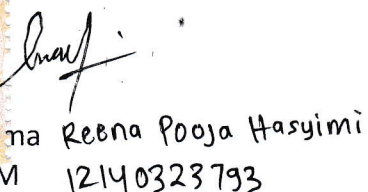 na Reena Pooja Hasyimi
M 12140323793